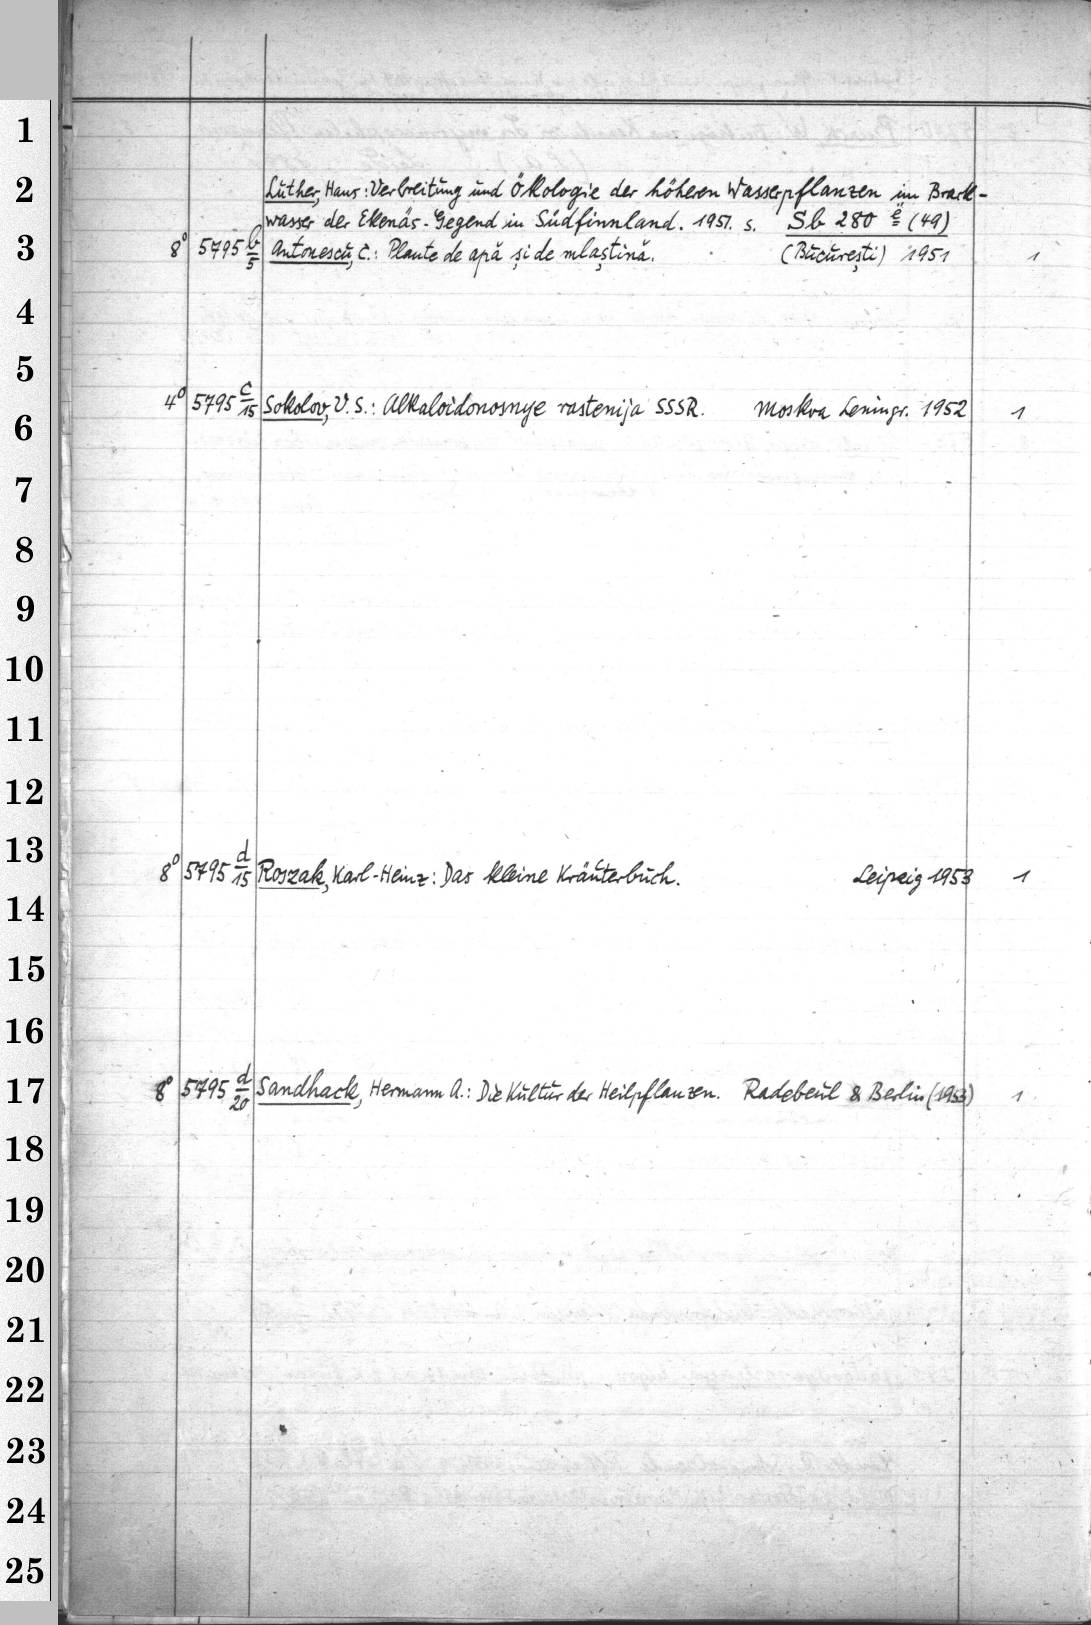 1
2
Luther, Hans: Verbreitung und Ökologie der höheren Wasserpflanzen im Brack-
wasser der Ekenäs-Gegend in Südfinnland. 1951. s. Sb 280 ë (49)
3
8° 5795 b/5 Antonescu, C.: Plante de apă și de mlaștină. (București) 1951 1
4
5
4° 5795 c/15 Sokolov, V. S.: Alkaloidonosnye rastenija SSSR. Moskva Leningr. 1952 1
6
7
8
9
10
11
12
13
8° 5795 d/15 Roszak, Karl-Heinz: Das kleine Kräuterbuch. Leipzig 1953 1
14
15
16
17
8° 5795 d/20 Sandhack, Hermann A.: Die Kultur der Heilpflanzen. Radebeul & Berlin (1953) 1
18
19
20
21
22
23
24
25